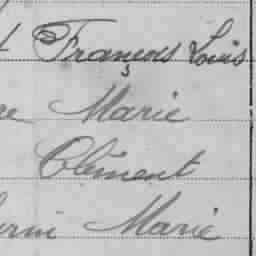 François Louis
Marie
Clément
Marie